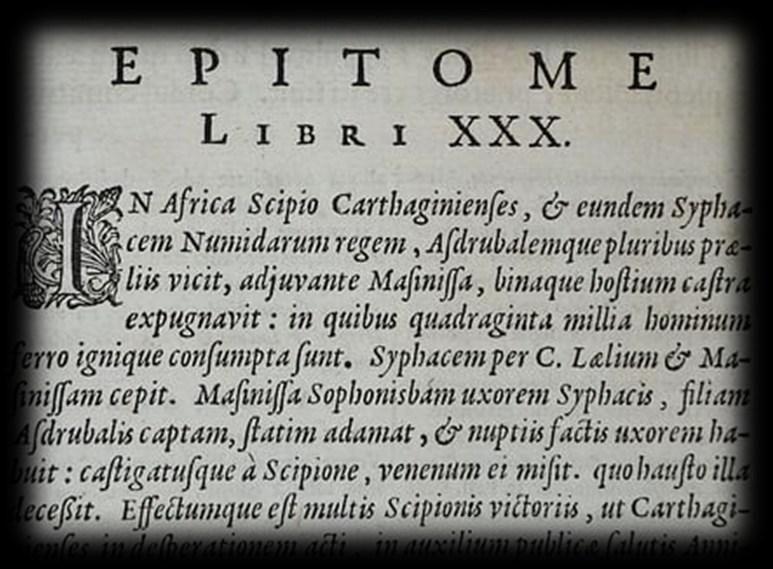 EPITOME
LIBRI XXX.
IN Africa Scipio Carthaginienſes, & eundem Sypha-
cem Numidarum regem, Aſdrubalemque pluribus præ-
liis vicit, adjuvante Maſiniſſa, binaque hoſtium caſtra
expugnavit: in quibus quadraginta millia hominum
ferro ignique conſumpta ſunt. Syphacem per C. Lælium & Ma-
ſiniſſam cepit. Maſiniſſa Sophonisbám uxorem Syphacis, filiam
Aſdrubalis captam, ſtatim adamat, & nuptiis factis uxorem ha-
buit: caſtigatuſque à Scipione, venenum ei miſit. quo hauſto illa
deceſſit. Effectumque eſt multis Scipionis victoriis, ut Carthagi-
nienſes in deſperationem acti, in auxilium publicæ ſalutis Anni-